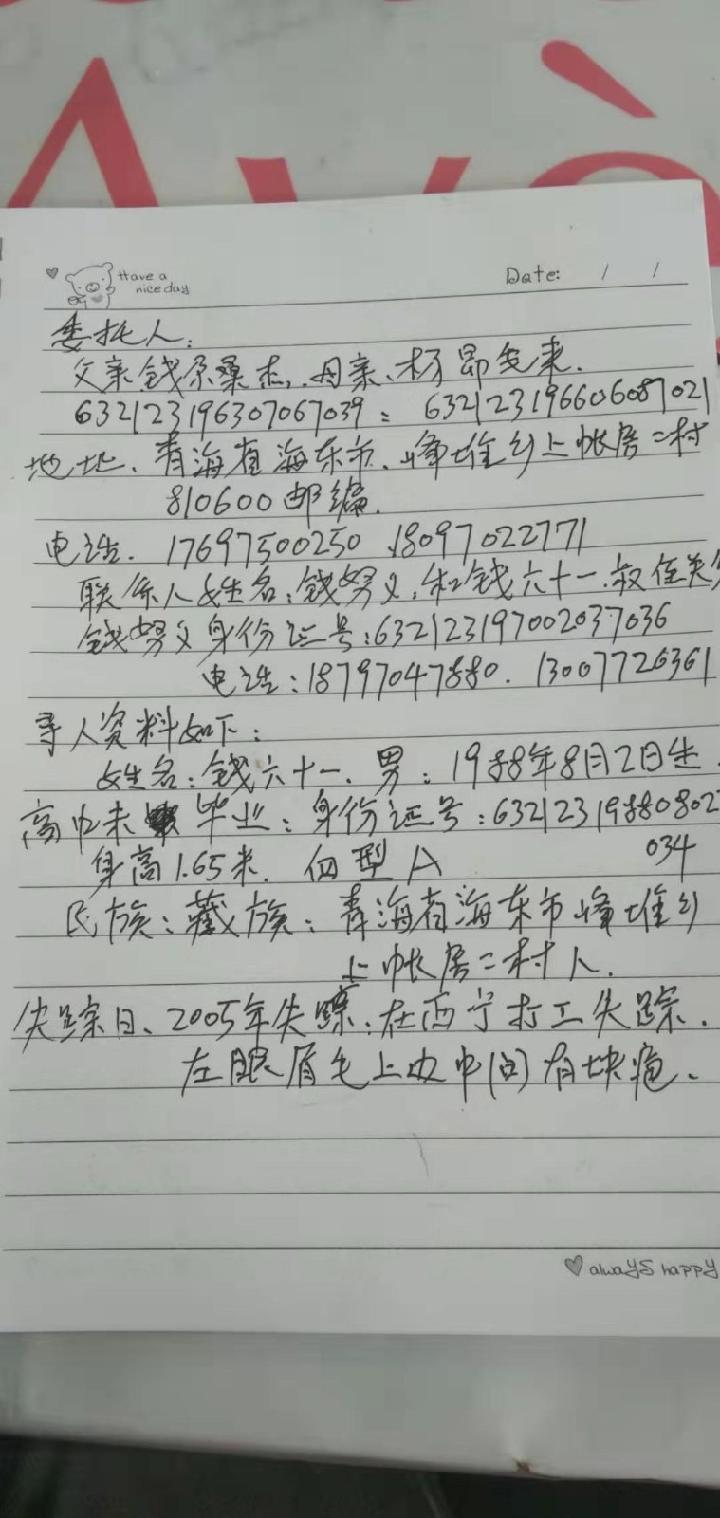 Have a
nice day
Date: / /
委托人:
父亲钱尕桑杰,母亲、杨昂先来.
632123196307067039: 632123196606087021
地址.青海省海东市.峰堆乡上帐房二村
810600邮编.
电话. 17697500250 、18097022771
联系人姓名:钱努义,和钱六十一.叔侄关
钱努义身份证号:632123197002037036
电话:18797047880. 13007726361
寻人资料如下:
姓名:钱六十一.男:1988年8月2日生.
高中未毕业:身份证号:63212319880802
034
身高1.65米. 血型A
民族:藏族:青海省海东市峰堆乡
上帐房二村人.
失踪日、2005年失踪:在西宁打工失踪.
左眼眉毛上边中间有块疤、
always happy